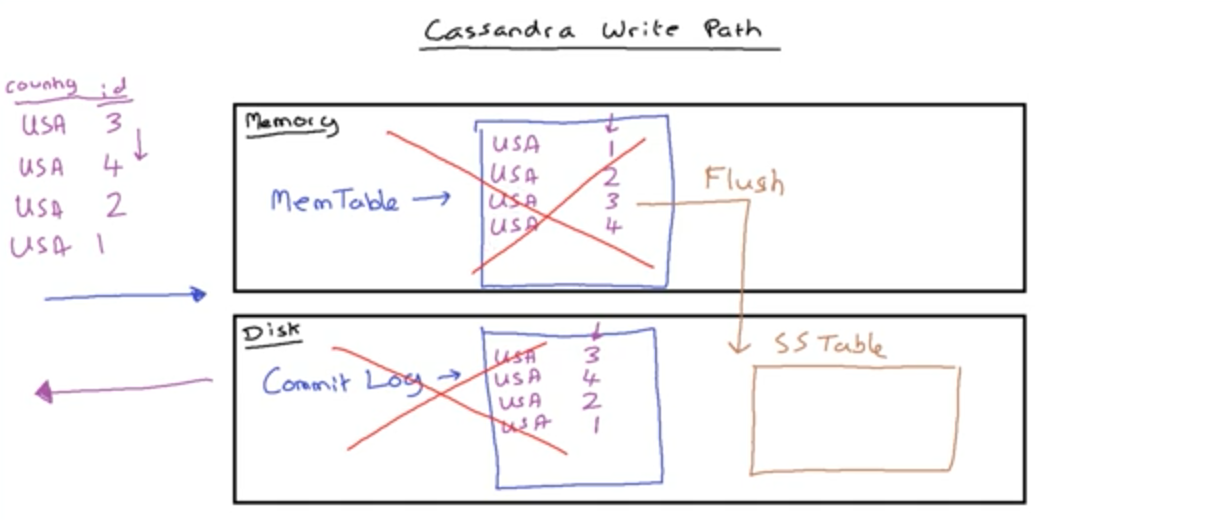 Cassandra Write Path
country id
USA 3
USA 4
USA 2
USA 1
Memory
MemTable →
USA 1
USA 2
USA 3
USA 4
Flush
Disk
Commit Log →
USA 3
USA 4
USA 2
USA 1
SS Table